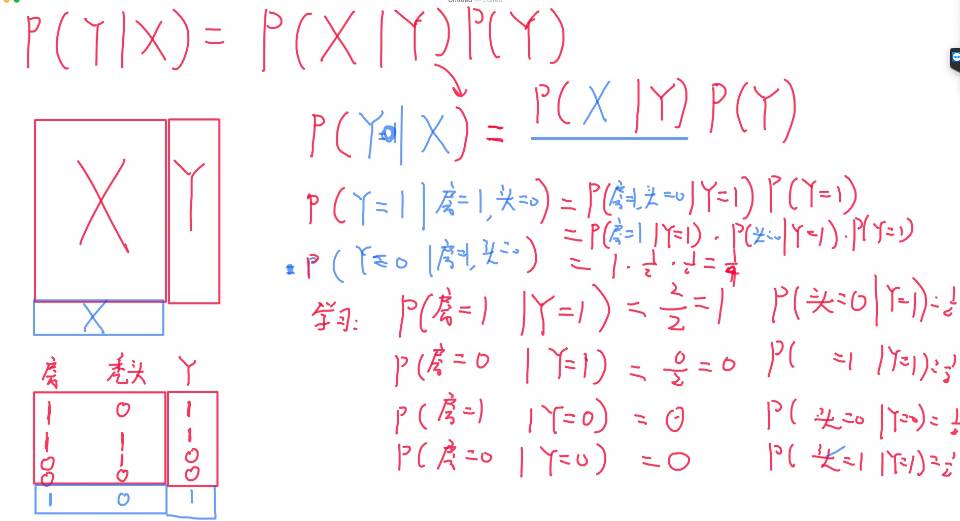 P(Y|X) = P(X|Y)P(Y)
P(Y=0|X) = P(X|Y)P(Y)
X Y
X
P(Y=1|房=1,头=0) = P(房=1,头=0|Y=1)P(Y=1)
= P(房=1|Y=1)·P(头=0|Y=1)·P(Y=1)
P(Y=0|房=1,头=0) = 1·1/2·1/2=1/4
学习: P(房=1|Y=1) = 2/2 = 1 P(头=0|Y=1)=1/2
P(房=0|Y=1) = 0/2 = 0 P( =1|Y=1)=1/2
P(房=1|Y=0) = 0 P(头=0|Y=0)=1/2
P(房=0|Y=0) = 0 P(头=1|Y=1)=1/2
房 秃头 Y
1 0 1
1 1 1
0 1 0
0 0 0
1 0 1